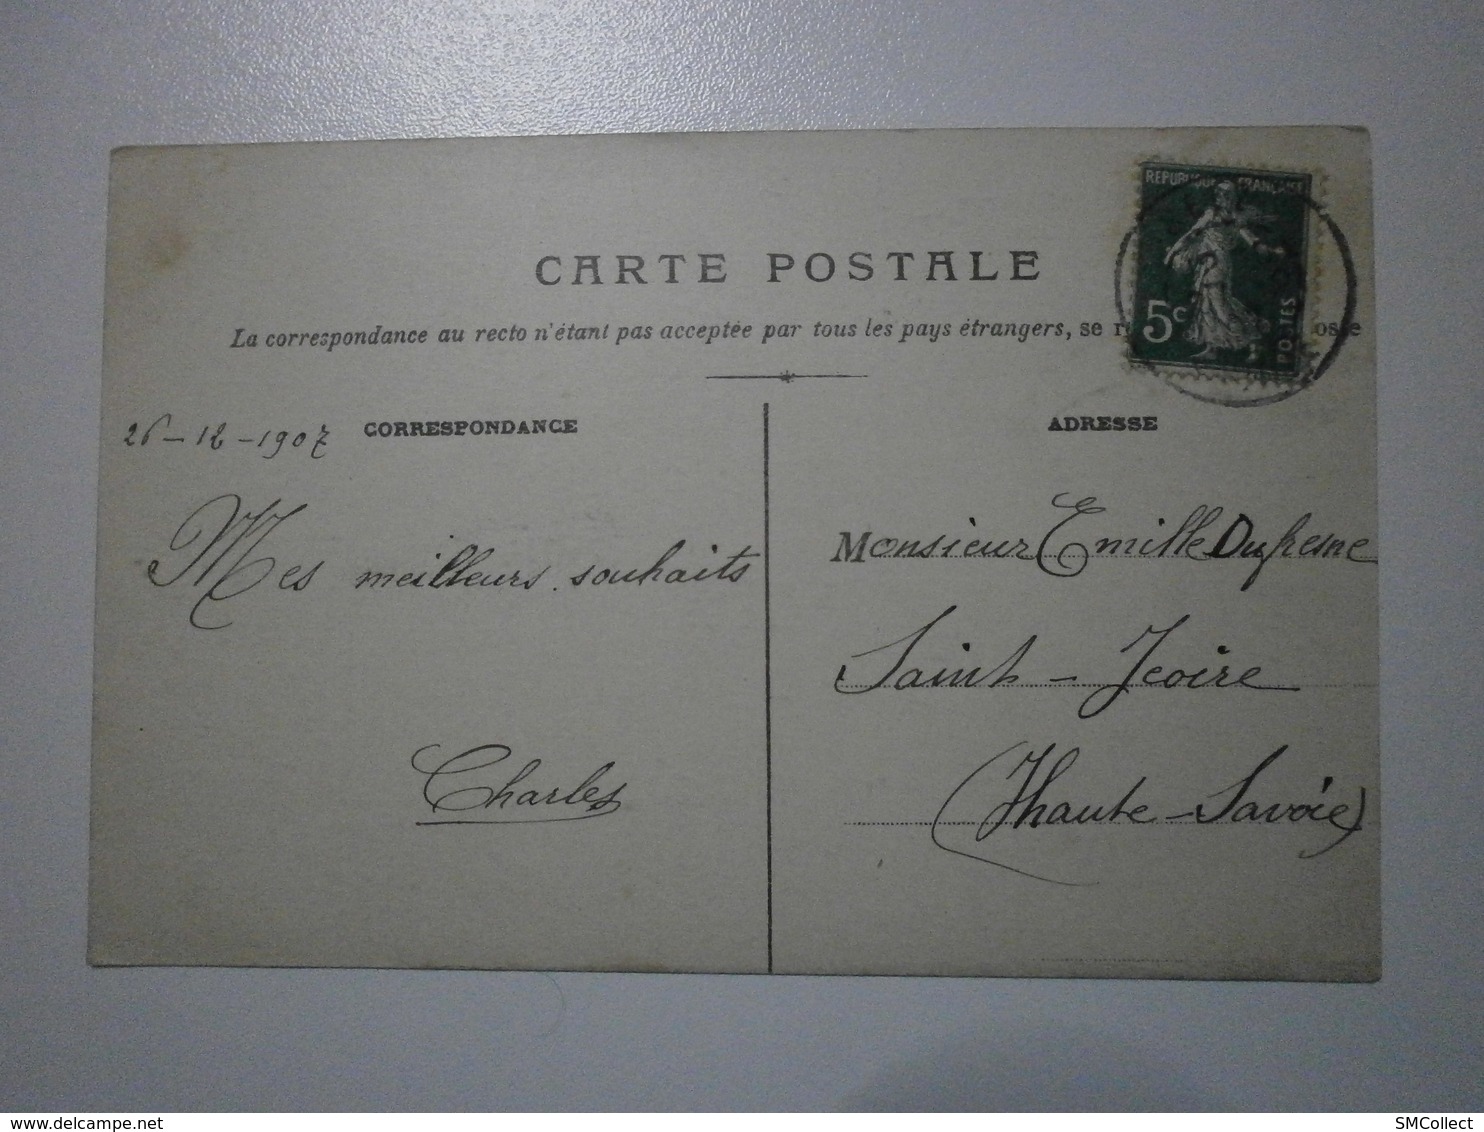 RÉPUBLIQUE FRANÇAISE
5c
POSTES
CARTE POSTALE
La correspondance au recto n'étant pas acceptée par tous les pays étrangers, se
CORRESPONDANCE
26-12-1907
Mes meilleurs souhaits
Charles
ADRESSE
Monsieur Emille Dufresne
Saint-Jeoire
(Haute-Savoie)
SMCollect